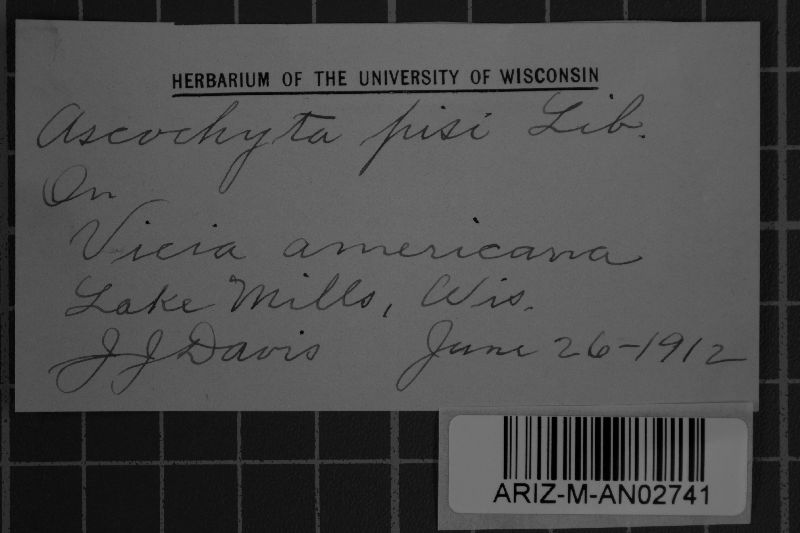 HERBARIUM OF THE UNIVERSITY OF WISCONSIN
Ascochyta pisi Lib.
On
Vicia americana
Lake Mills, Wis.
J J Davis June 26-1912
ARIZ-M-AN02741